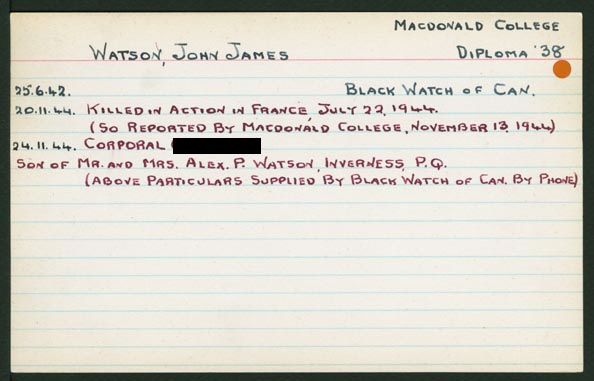 MACDONALD COLLEGE
WATSON, JOHN JAMES DIPLOMA '38
25.6.42. BLACK WATCH OF CAN.
20.11.44. KILLED IN ACTION IN FRANCE, JULY 22, 1944.
(SO REPORTED BY MACDONALD COLLEGE, NOVEMBER 13, 1944)
24.11.44. CORPORAL
SON OF MR. AND MRS. ALEX. P. WATSON, INVERNESS, P.Q.
(ABOVE PARTICULARS SUPPLIED BY BLACK WATCH OF CAN. BY PHONE)